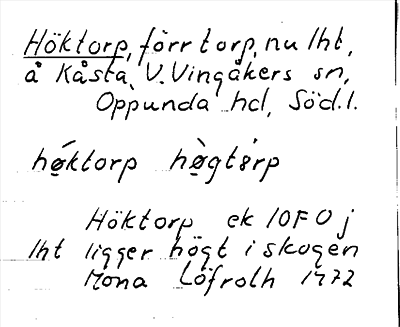 Höktorp, förr torp, nu lht,
å Kåsta, V. Vingåkers sn,
Oppunda hd, Söd.l.
hǿktorp hø̀gtȯrp
Höktorp ek 10F 0 j
lht ligger högt i skogen
Mona Löfroth 1972